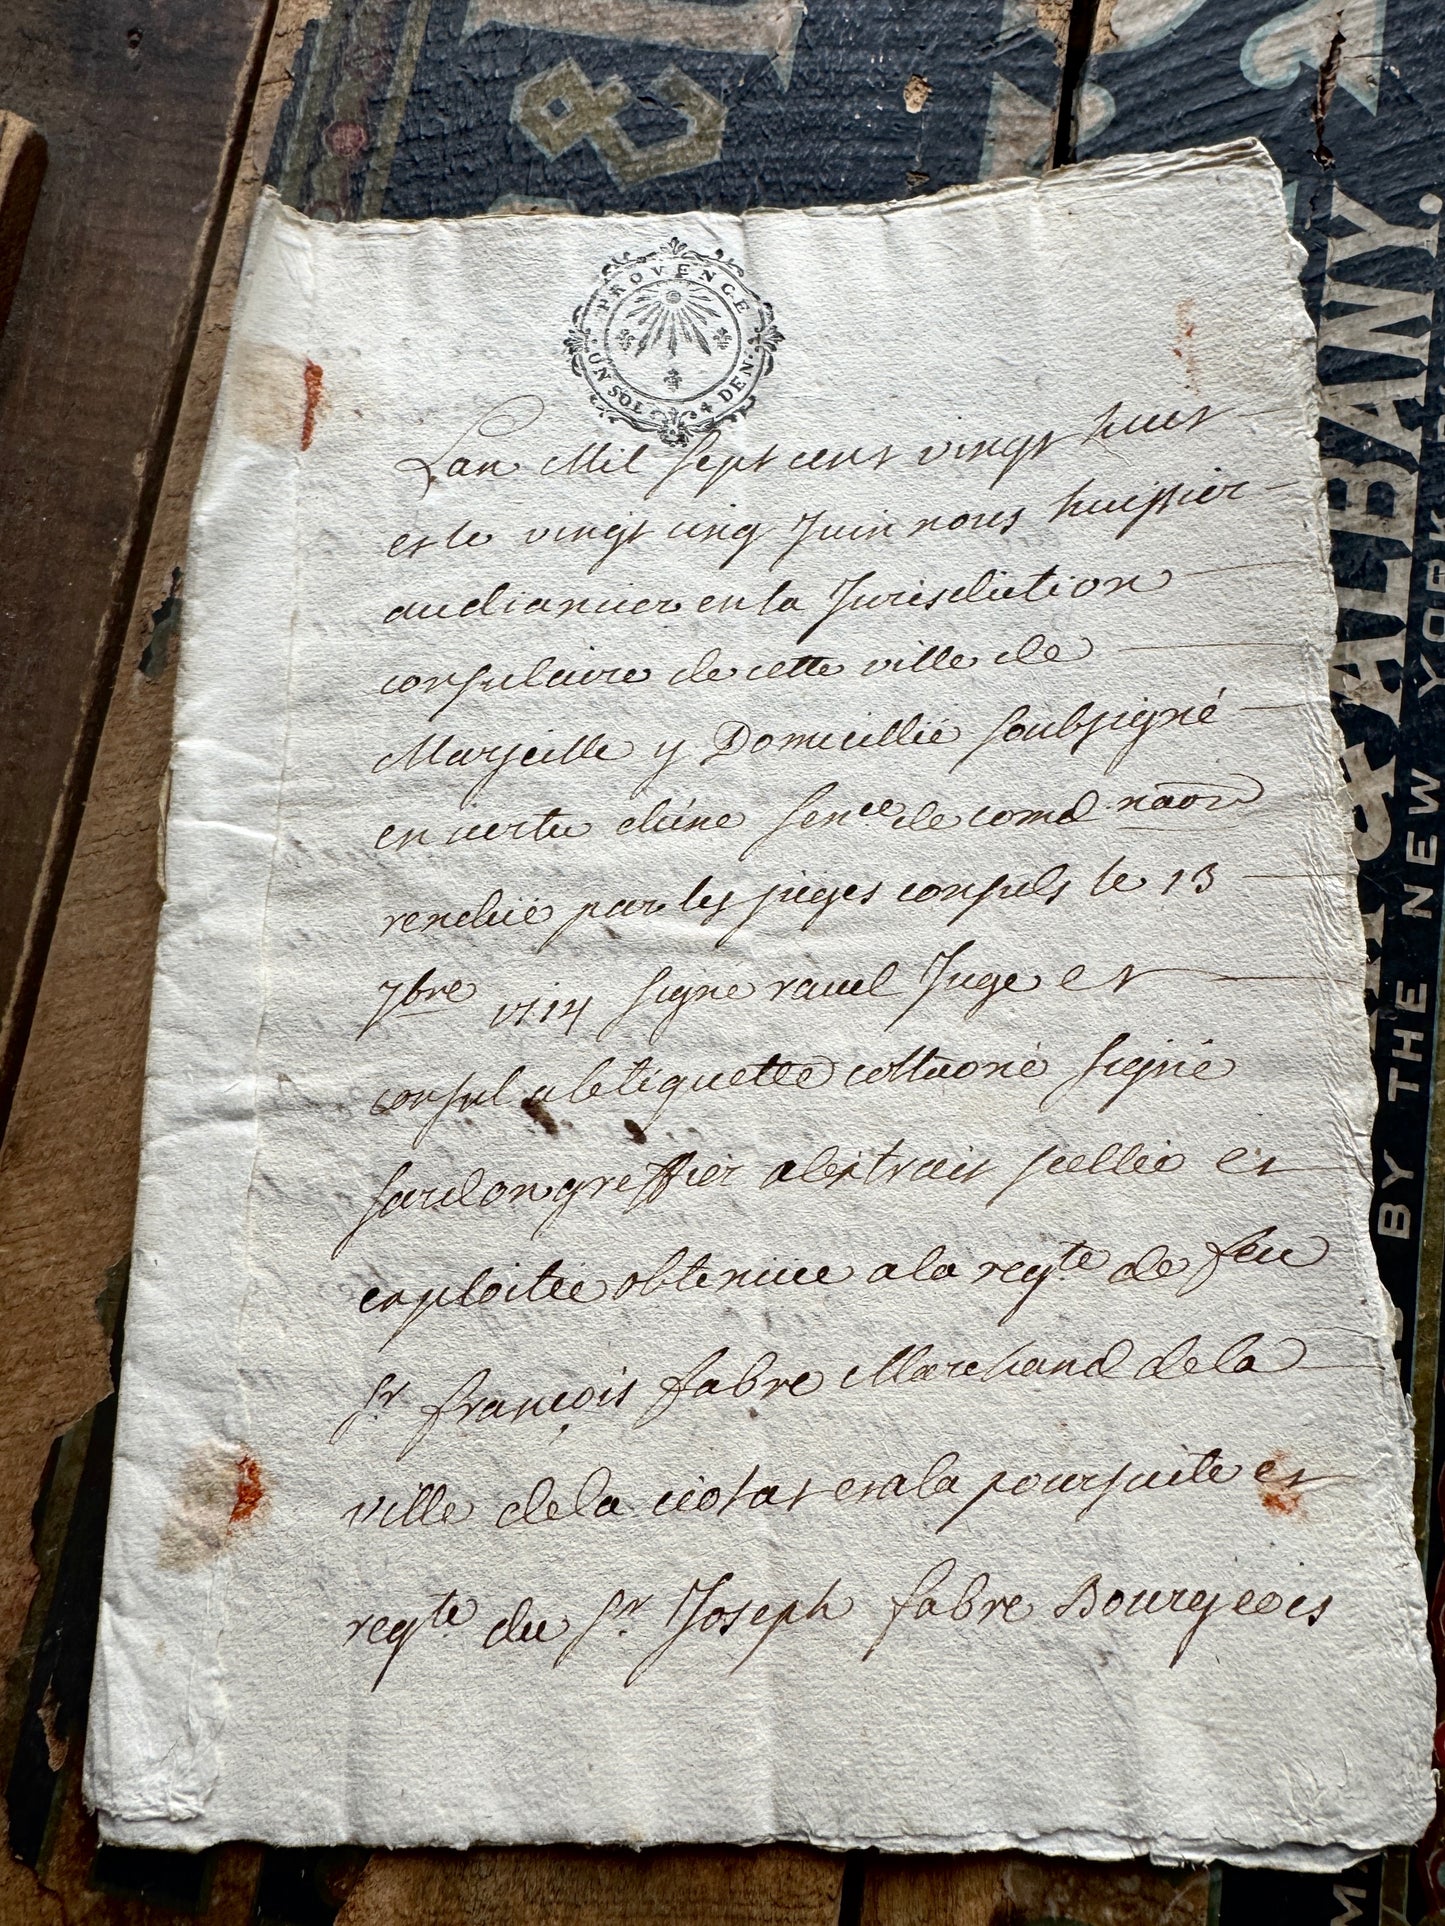 PROVENCE
UN SOL 4 DEN.
Lan Mil sept cent vingt huit
et le vingt cinq Juin nous huissier
audiancier en la Jurisdiction
consulaire de cette ville de
Marseille y Domicillié soubsigné
en vertu d'une sence de comd naōn
rendüe par les juges consuls le 13
7bre 1714 signé ravel Juge et
consul a letiquette collaōné signé
sardon greffier alextrait scellé et
exploitée obtenüe a la reqte de feu
sr françois fabre Marchand de la
ville de la ciotat et a la poursuite et
reqte du sr Joseph fabre Bourgeois
& ALBANY.
BY THE NEW YORK